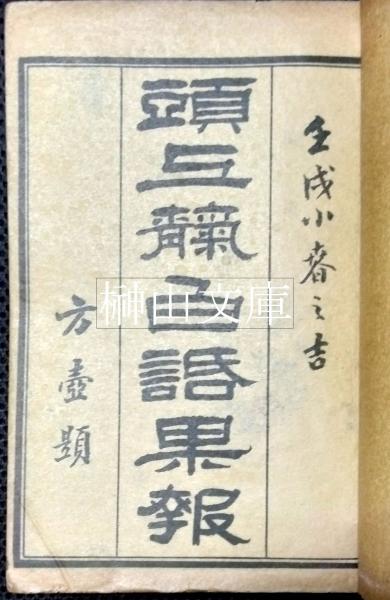 壬戌小春之吉
頭靝白話果報
方壺題
榊山文庫